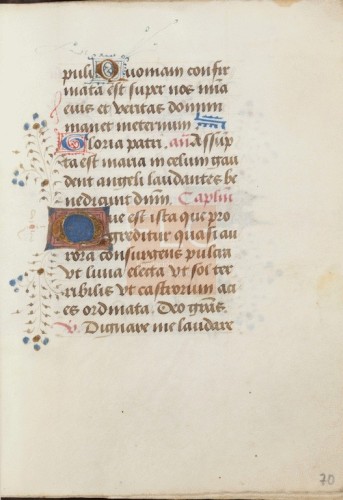 puli Quoniam confir
mata est super nos mīa
eius et veritas domini
manet ineternum
Gloria patri. añ Assup
ta est maria in celum gau
dent angeli laudantes be
nedicunt dñm. Capl'm
Que est ista que pro
greditur quasi au
rora consurgens pulcra
vt luna electa vt sol ter
ribilis vt castrorum aci
es ordinata. Deo grās.
V. Dignare me laudare
70